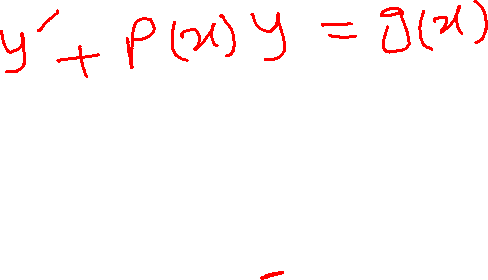 y′ + p(x) y = g(x)